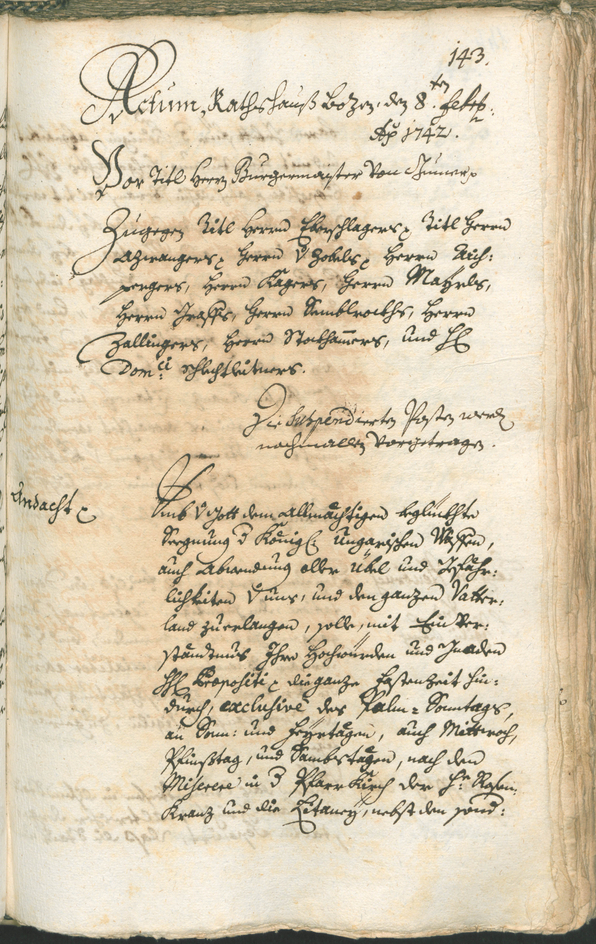 143.
Actum, Rathshauß Bozen, den 8.ten Febr.
Ao 1742.
Vor Titl Herrn Burgermaister von
Zugegen Titl Herrn Eberschlagers, Titl Herrn
Azwangers, Herrn v Zobels, Herrn Aich:
pergers, Herrn Kagers, Herrn Mayrls,
Herrn Graffs, Herrn Semblrockhs, Herrn
Zallingers, Herrn Stockhamers, und H
Domci Schlechtleitners.
Die suspendierten Posten werden
nochmallen vorgetragen.
Andacht
Umb v Gott dem Allmächtigen beglückhte
Seegnung d Königl: Ungarischen Waffen,
auch Abwendung aller Übel und Gefähr:
lichkeiten v uns, und den ganzen Vatter:
land zuerlangen, solle, mit Einver:
ständtnus Ihre Hochwürden und Gnaden
H Propositi die ganze Fastenzeit hin:
durch, exclusive des Palm=Sonntags,
an Sonn: und Feyrtägen, auch Mittwoch,
Pfinstag, und Sambstägen, nach dem
Miserere in d Pfarrkirch der H: Rosen:
Kranz und die Litaney, nebst den sond: